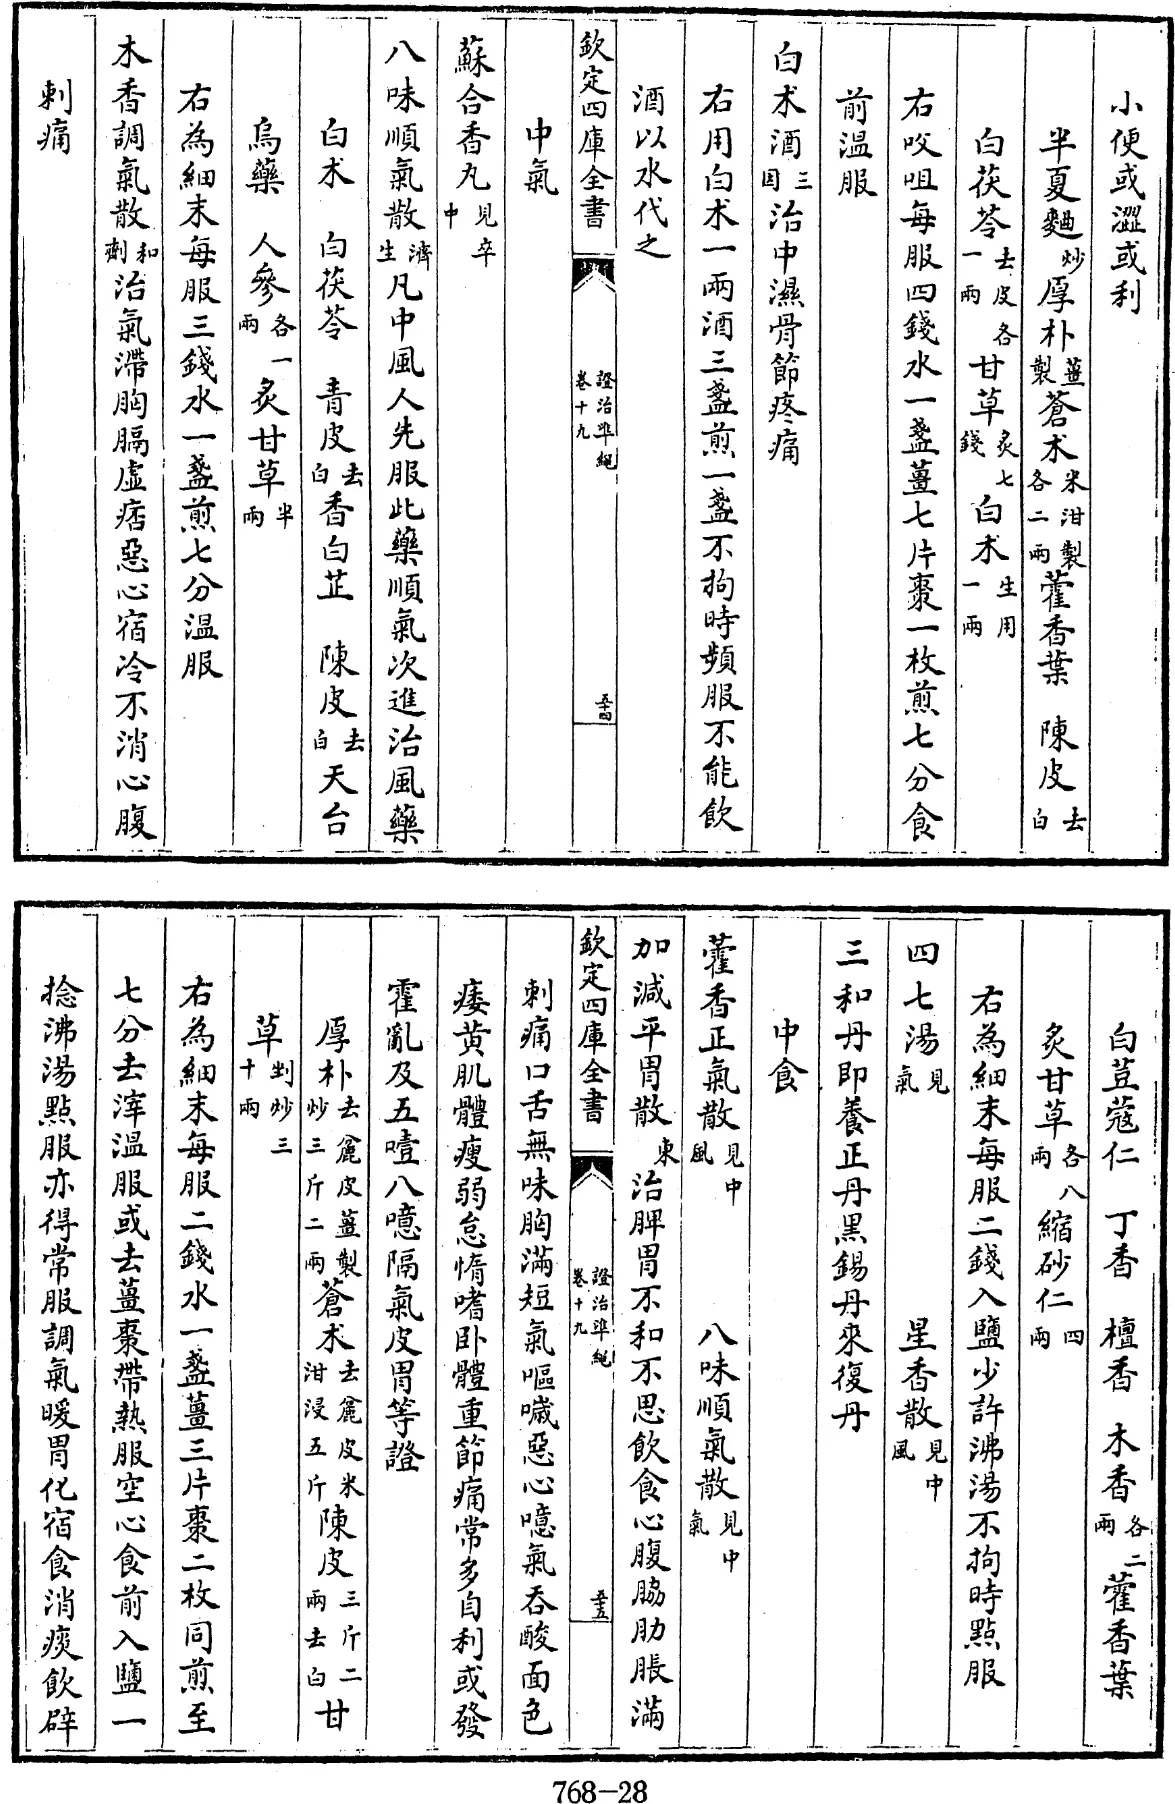 小便或澀或利
半夏麯炒厚朴薑製蒼术米泔製各二兩藿香葉　陳皮去白
白茯苓去皮各一兩甘草炙七錢白术生用一兩
右㕮咀每服四錢水一盞薑七片棗一枚煎七分食
前温服
白术酒三因治中濕骨節疼痛
右用白术一兩酒三盞煎一盞不拘時頻服不能飲
酒以水代之
欽定四庫全書　證治準繩卷十九　五十四
中氣
蘇合香丸見卒中
八味順氣散濟生凡中風人先服此藥順氣次進治風藥
白术　白茯苓　青皮去白香白芷　陳皮去白天台
烏藥　人參各一兩炙甘草半兩
右為細末每服三錢水一盞煎七分温服
木香調氣散和劑治氣滯胸膈虛痞惡心宿冷不消心腹
刺痛
白荳蔻仁　丁香　檀香　木香各二兩藿香葉
炙甘草各八兩縮砂仁四兩
右為細末每服二錢入鹽少許沸湯不拘時點服
四七湯見氣　星香散見中風
三和丹即養正丹黑錫丹來復丹
中食
藿香正氣散見中風　八味順氣散見中氣
加減平胃散東治脾胃不和不思飲食心腹脇肋脹滿
欽定四庫全書　證治準繩卷十九　五十五
刺痛口舌無味胸滿短氣嘔噦惡心噫氣吞酸面色
痿黄肌體瘦弱怠惰嗜卧體重節痛常多自利或發
霍亂及五噎八噫隔氣皮胃等證
厚朴去麄皮薑製炒三斤二兩蒼术去麄皮米泔浸五斤陳皮三斤二兩去白甘
草剉炒三十兩
右為細末每服二錢水一盞薑三片棗二枚同煎至
七分去滓温服或去薑棗帶熱服空心食前入鹽一
捻沸湯點服亦得常服調氣暖胃化宿食消痰飲辟
768-28